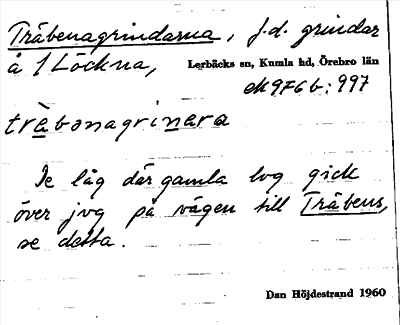 Träbenagrindarna, f.d. grindar
å 1 Löckna, Lerbäcks sn, Kumla hd, Örebro län
ek 9F6b:997
träbənagrinara
De låg där gamla lvg gick
över jvg på vägen till Träbens,
se detta.
Dan Höjdestrand 1960